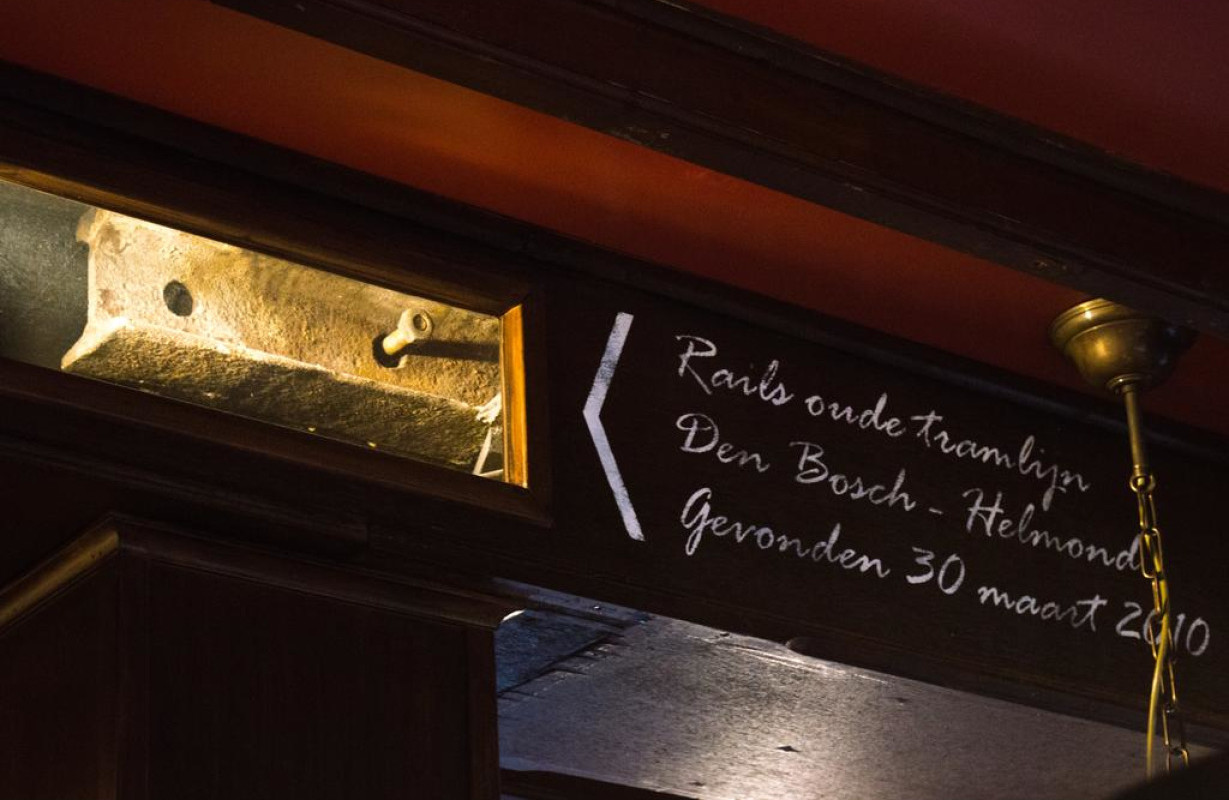 Rails oude tramlijn
Den Bosch - Helmond
Gevonden 30 maart 2010